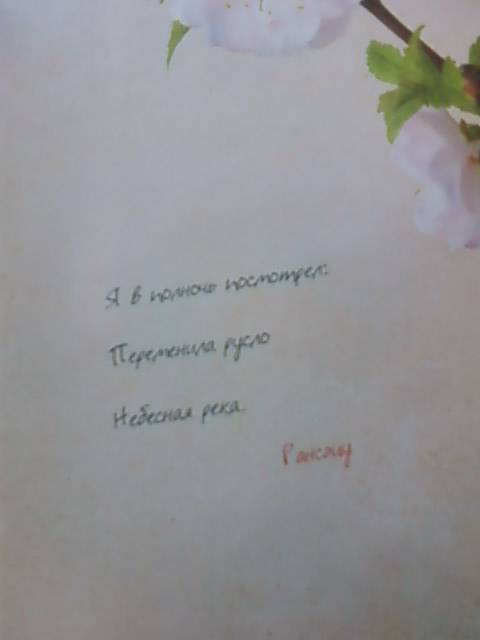 Я в полночь посмотрел:
Переменила русло
Небесная река.
Рансэцу